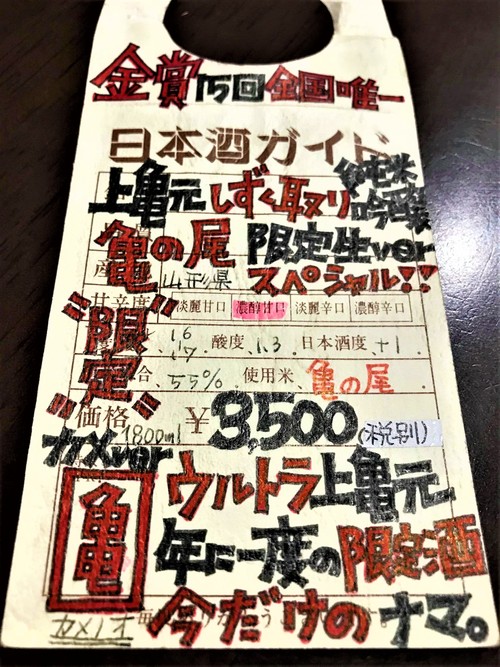 金賞15回全国唯一
日本酒ガイド
上亀元しずく取り純米吟醸
亀の尾 限定生ver
産 山形県 スペシャル!!
甘辛度 淡麗甘口 濃醇甘口 淡麗辛口 濃醇辛口
"限定"
16 17 酸度 1.3 日本酒度 +1
合 55% 使用米 亀の尾
価格 1800ml ¥3,500(税別)
カメver
亀 ウルトラ上亀元
年に一度の限定酒
今だけのナマ。